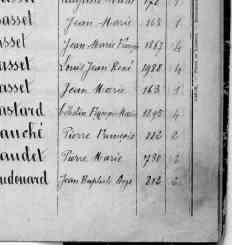 asset Jean Marie 168 1
asset Jean Marie Franç 1863 4
asset Louis Jean René 1988 4
asset Jean Marie 163 1
astard François Marie 1890 4
auché Pierre François 222 2
audet Pierre Marie 730 2
udouard Jean Baptiste 212 2